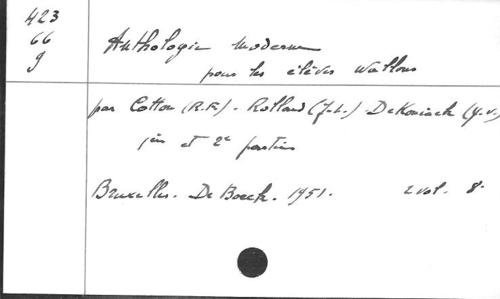 423
66
9
Anthologie moderne
pour les élèves wallons
par Cotton (R.R.) - Rolland (J.L.) - DeKoninck (J.V.)
1ère et 2e parties
Bruxelles. De Boeck. 1951. 2 vol. 8°